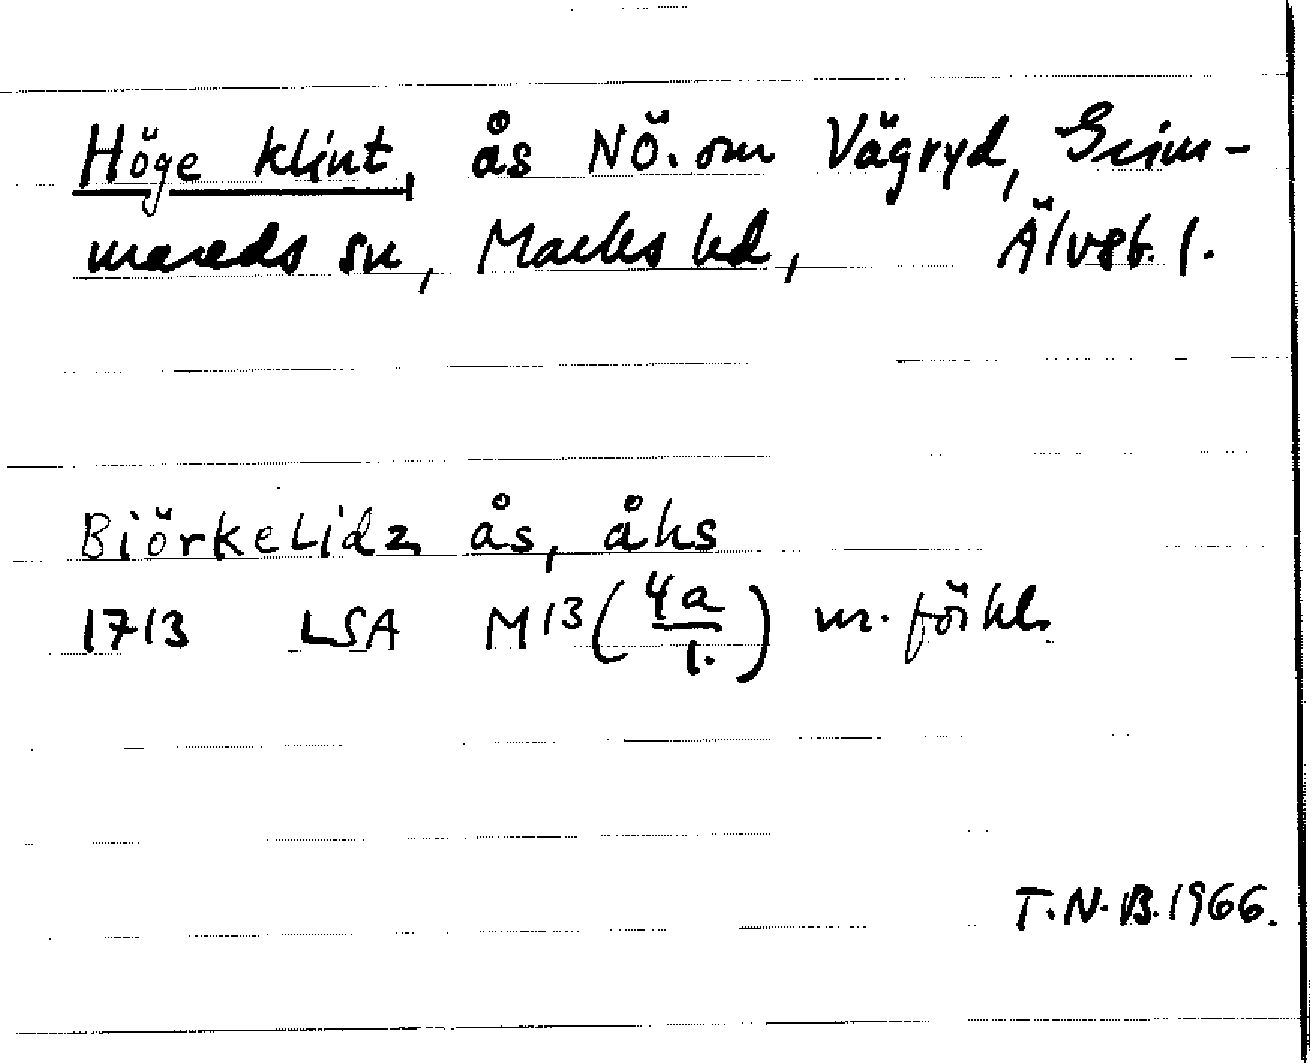 Höge klint, ås NÖ. om Vägryd, Grim-
mareds sn, Marks hd, Älvsb. l.
Biörkelidz ås, åhs
1713 LSA M13 (4a/1.) m. förkl.
T.N.B. 1966.